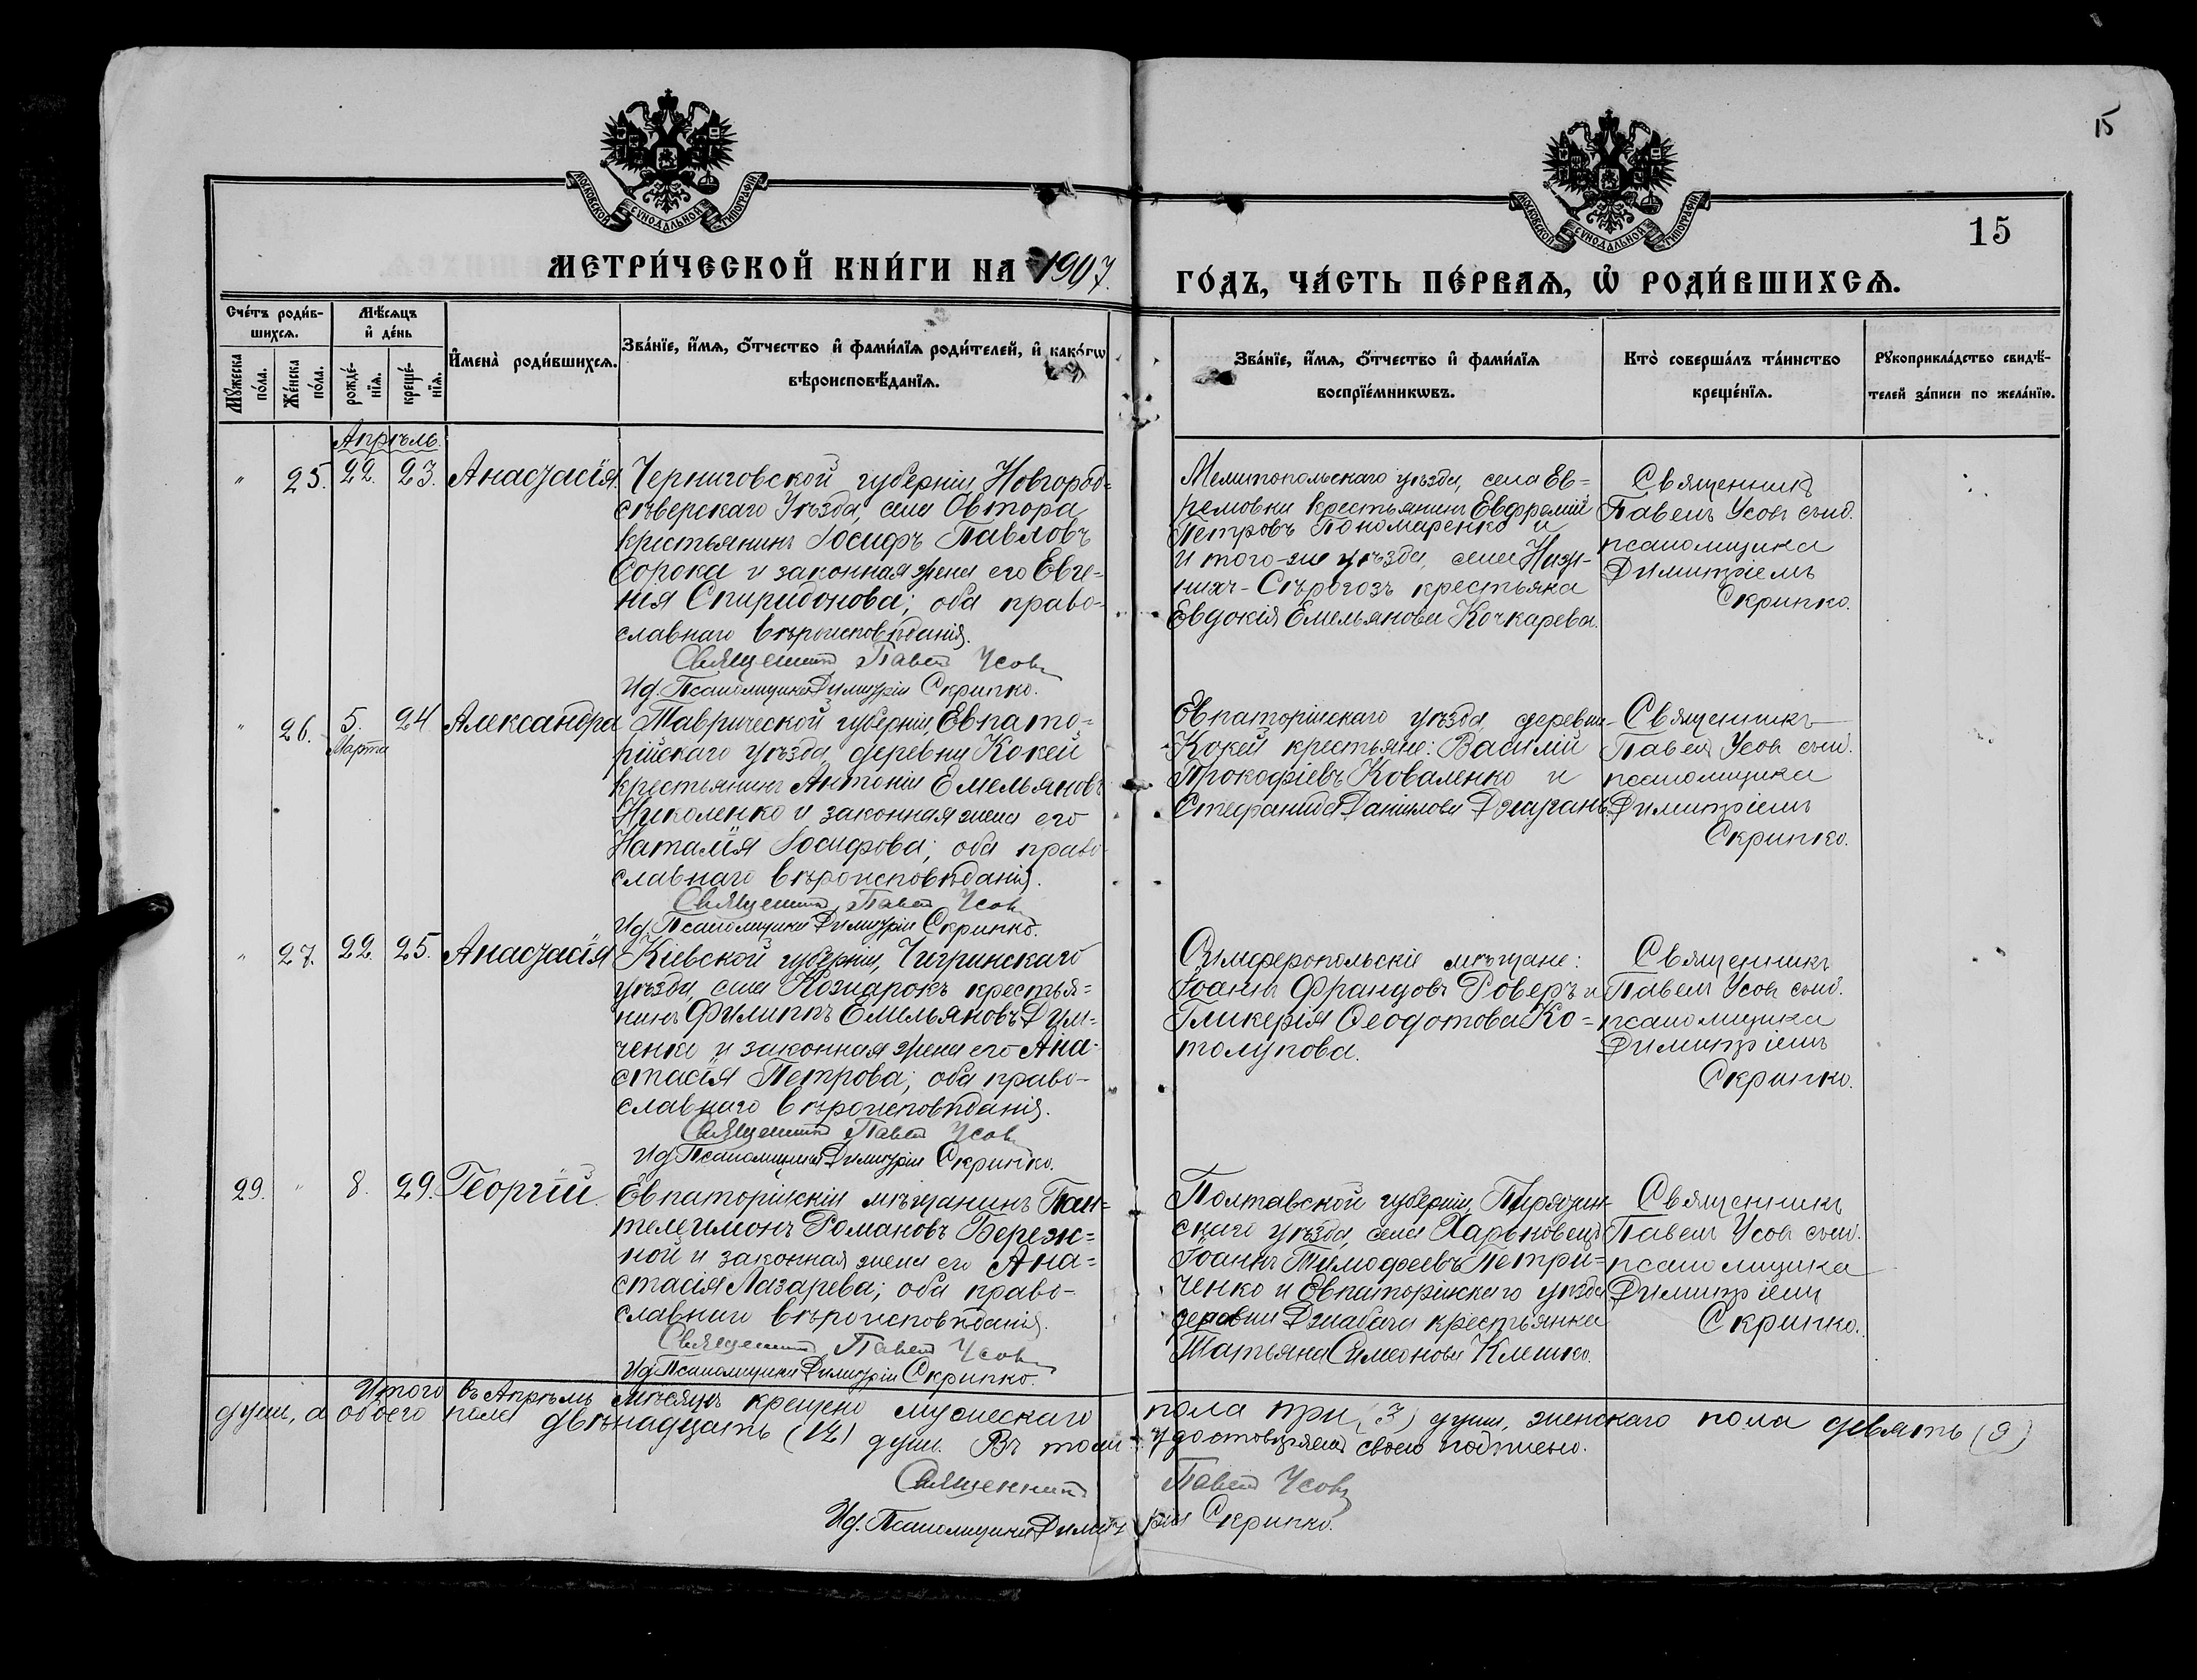 15
МОСКОВСКОЙ СѴНОДАЛЬНОЙ ТИПОГРАФІИ
МОСКОВСКОЙ СѴНОДАЛЬНОЙ ТИПОГРАФІИ
15
МЕТРИ́ЧЕСКОЙ КНИ́ГИ НА 1907.
ГО́ДЪ, ЧА́СТЬ ПЕ́РВАѦ, Ѡ҆ РОДИ́ВШИХСѦ.
Сче́тъ роди́в-
шихсѧ.
Мꙋ́жеска по́ла.
Же́нска по́ла.
Мѣ́сѧцъ
и҆ де́нь
рожде́-
нїѧ.
креще́-
нїѧ.
И҆мена̀ роди́вшихсѧ.
Зва́нїе, и҆́мѧ, ѻ҆́тчество и҆ фами́лїѧ роди́телей, и҆ како́гѡ
вѣроисповѣ́данїѧ.
Зва́нїе, и҆́мѧ, ѻ҆́тчество и҆ фами́лїѧ
воспрїе́мникѡвъ.
Кто̀ соверша́лъ та́инство
креще́нїѧ.
Рꙋкоприкла́дство свидѣ́-
телей за́писи по жела́нїю.
Апрѣль.
" 25. 22. 23. Анастасія
Черниговской губерніи Новгород=
сѣверскаго Уѣзда, села Овтора
крестьянинъ Іосифъ Павловъ
Сорока и законная жена его Евге=
нія Спиридонова; оба право-
славнаго вѣроисповѣданія.
Священникъ Павелъ Усовъ
И.д. Псаломщика Димитрій Скрипко.
Мелитопольскаго уѣзда, села Еѳ=
ремовки крестьянинъ Евфремій
Петровъ Пономаренко и
и того-же уѣзда, села Ниж-
нихъ-Сѣрогозъ крестьянка
Евдокія Емельянова Кочкарева.
Священникъ
Павелъ Усовъ съ и.д.
псаломщика
Димитріемъ
Скрипко.
" 26. 5. Марта 24 Александра
Таврической губерніи, Евпато=
рійскаго уѣзда, деревни Кокей
крестьянинъ Антоній Емельяновъ
Николенко и законная жена его
Наталія Іосифова; оба право-
славнаго вѣроисповѣданія.
Священникъ Павелъ Усовъ
И.д. Псаломщика Димитрій Скрипко.
Евпаторійскаго уѣзда деревни
Кокей крестьяне: Василій
Прокофіевъ Коваленко и
Стефанида Данилова Джугань.
Священникъ
Павелъ Усовъ съ и.д.
псаломщика
Димитріемъ
Скрипко.
" 27. 22. 25. Анастасія
Кіевской губерніи, Чигринскаго
уѣзда, села Кожарокъ крестья=
нинъ Филиппъ Емельяновъ Дум=
ченко и законная жена его Ана-
стасія Петрова; оба право-
славнаго вѣроисповѣданія.
Священникъ Павелъ Усовъ
И.д. Псаломщика Димитрій Скрипко.
Симферопольскіе мѣщане:
Іоаннъ Францовъ Роверъ и
Гликерія Ѳеодотова Ко=
толупова.
Священникъ
Павелъ Усовъ съ и.д.
псаломщика
Димитріемъ
Скрипко.
29. " 8. 29. Георгій.
Евпаторійскій мѣщанинъ Пан=
телеимонъ Романовъ Береж=
ной и законная жена его Ана=
стасія Лазарева; оба право-
славнаго вѣроисповѣданія.
Священникъ Павелъ Усовъ
И.д. Псаломщика Димитрій Скрипко.
Полтавской губерніи, Пирятин-
скаго уѣзда, села Харьковецъ
Іоаннъ Тимофеевъ Петри=
ченко и Евпаторійскаго уѣзда
деревни Джабага крестьянка
Татьяна Симеонова Клешко.
Священникъ
Павелъ Усовъ съ и.д.
псаломщика
Димитріемъ
Скрипко.
Итого въ Апрѣлѣ мѣсяцѣ крещено мужескаго пола три (3) души, женскаго пола девять (9)
душъ, а обоего пола двѣнадцать (12) душъ. Въ томъ удостовѣряемъ своею подписью.
Священникъ Павелъ Усовъ
И.д. Псаломщика Димитрій Скрипко.